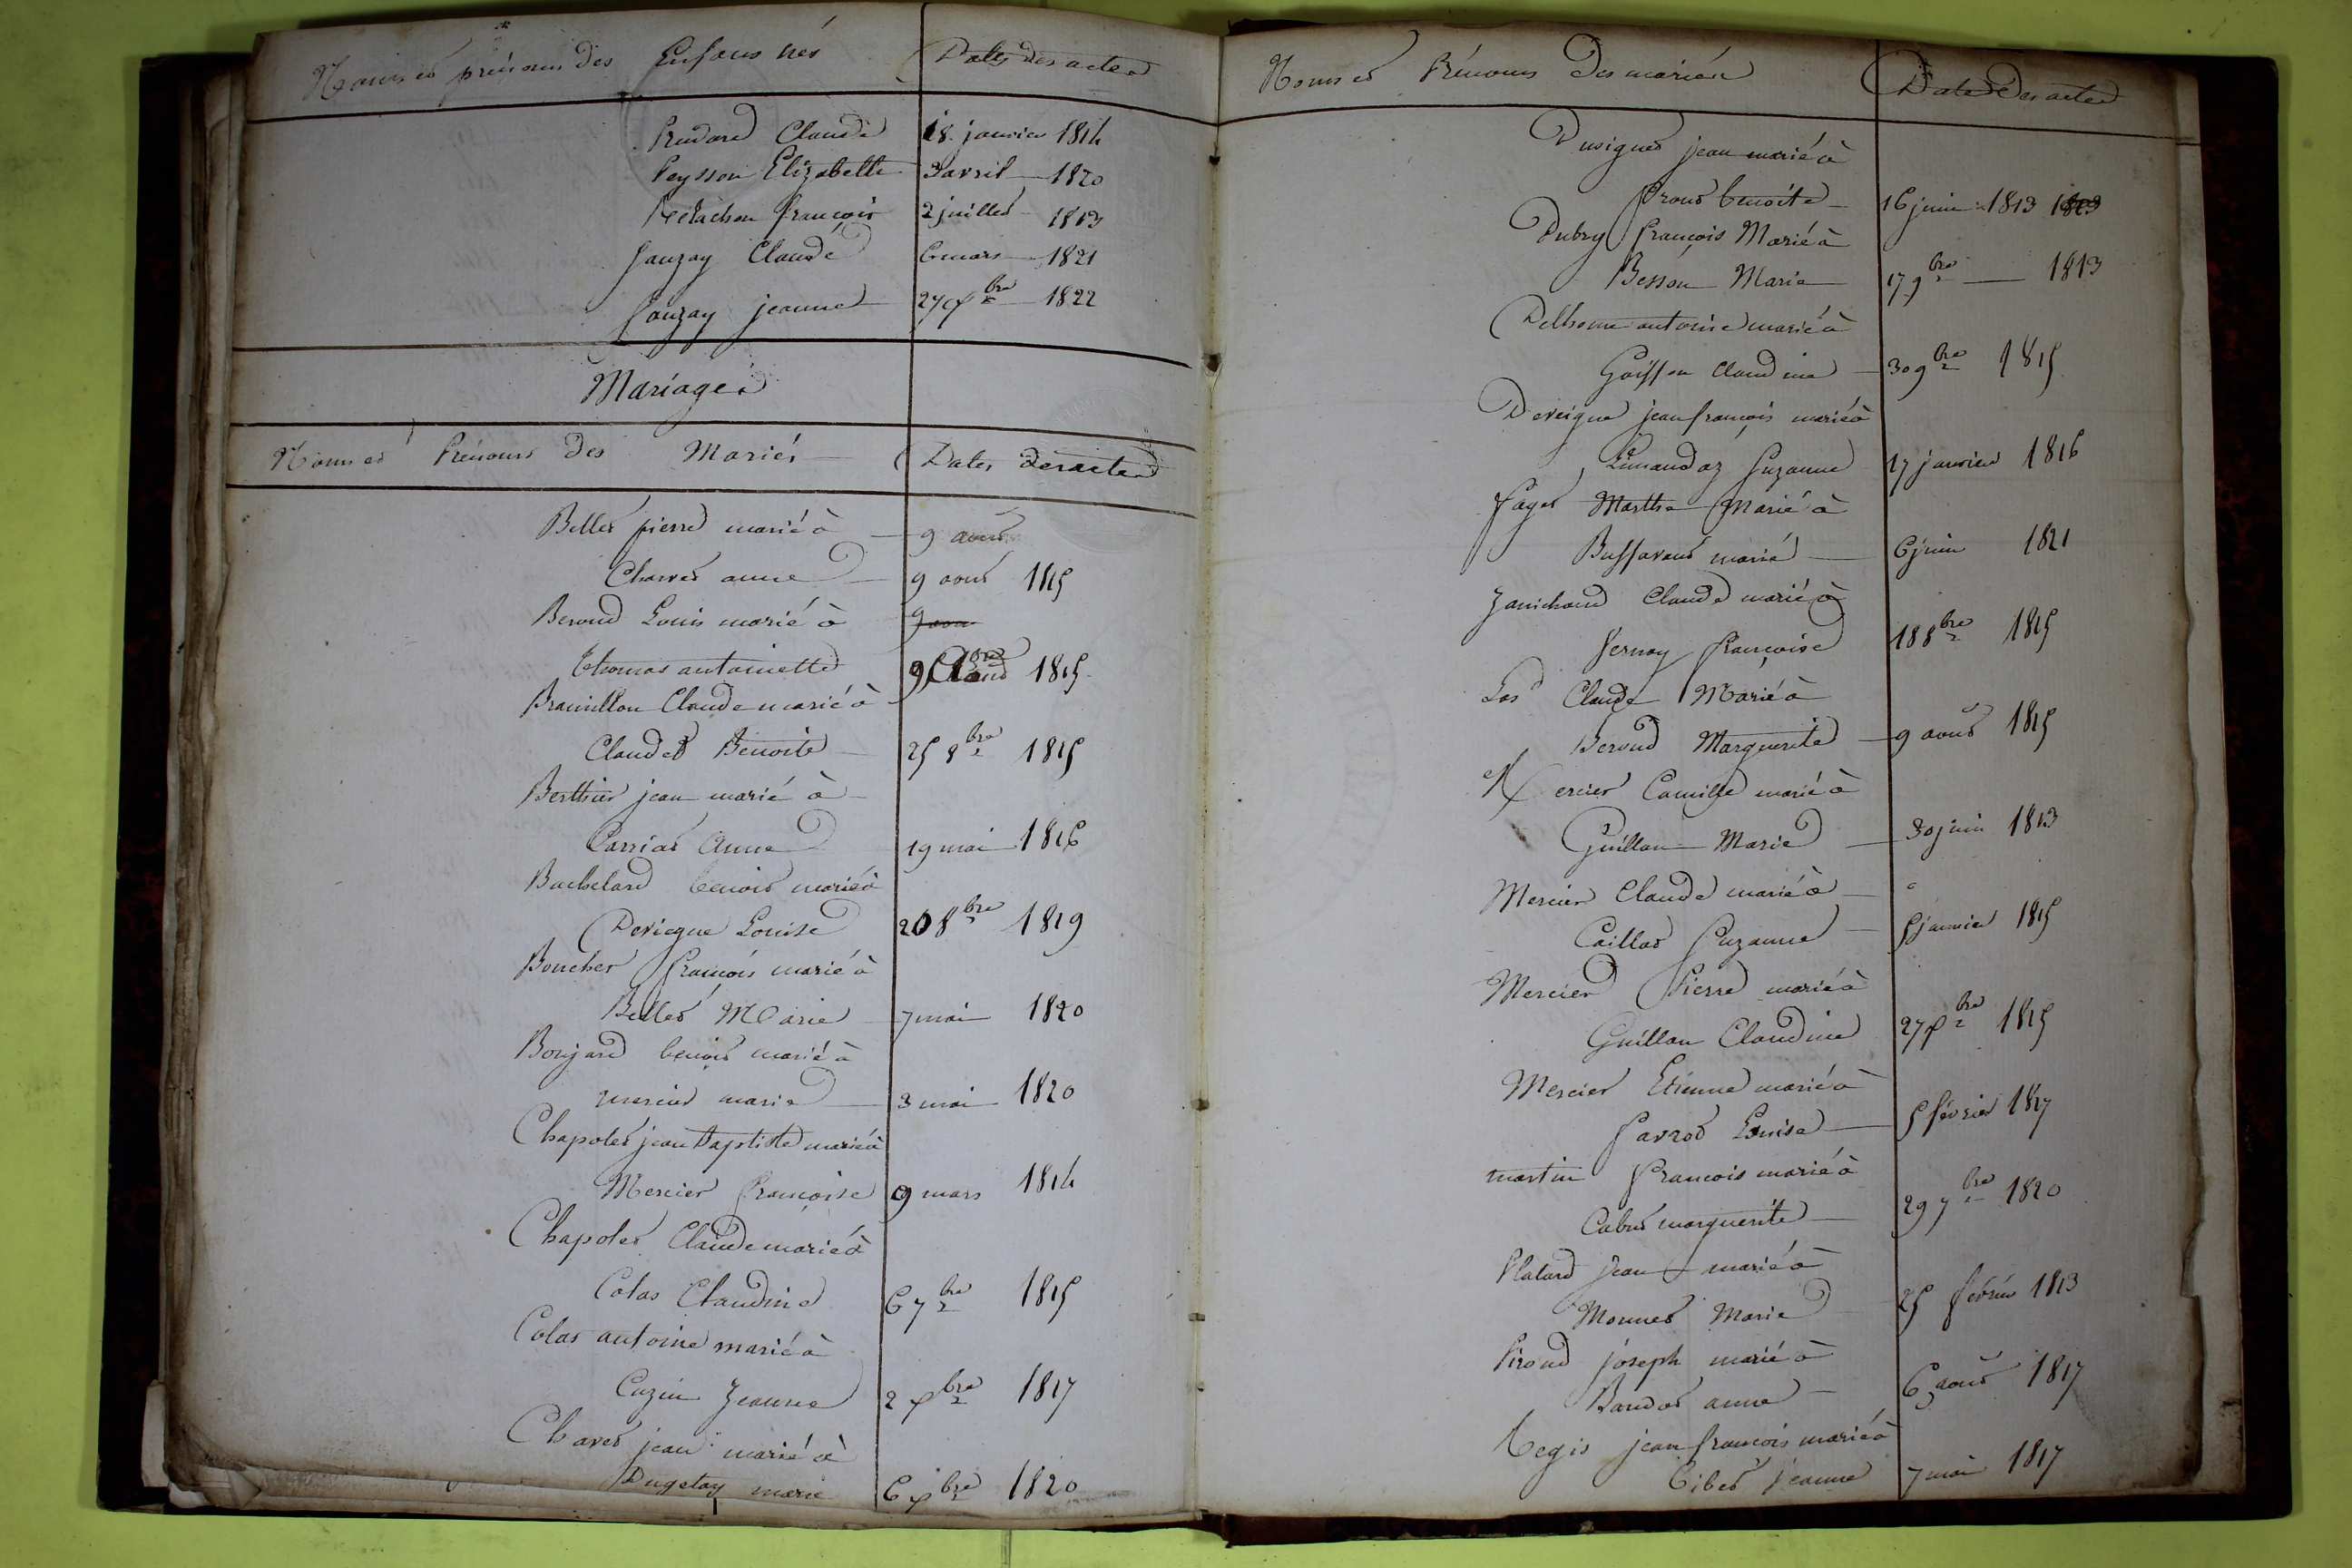 Noms et prénoms des Enfans nés Dates des actes
Prudard Claude 18 janvier 1814
Peysson Elizabette 3 avril 1820
françois 2 juillet 1813
Sauzay Claude 6 mars 1821
Sauzay jeanne 27 xbre 1822
Mariages
Noms et Prénoms des Mariés Dates des actes
Bellet pierre marié à 9 aout
Charvet anne 9 aout 1815
Beroud Louis marié à 9 aou
Thomas antoinette 9 Aout 1815
Bramillon Claude marié à
Claudet Benoite 25 8bre 1815
Berthier jean marié à
Carriat Anne 19 mai 1816
Bachelard benoit marié à
Devicgne Louise 20 8bre 1819
Boucher françois marié à
Bellet Marie 7 mai 1820
Boujard benoit marié à
mercier marie 3 mai 1820
Chapolet jean Baptiste marié à
Mercier françoise 9 mars 1814
Chapolet Claude marié à
Colas Claudine 6 7bre 1815
Colas antoine marié à
Cuzin Jeanne 2 xbre 1817
Chavet jean marié à
Dugelay marie 6 xbre 1820
Noms et Prénoms des mariés Dates des actes
Duvignes jean marié à
Prout benoite 16 juin 1813 1813
Dubry François Marié à
Besson Marie 17 9bre 1813
Delhome antoine marié à
Goiffon Claudine 30 9bre 1815
Deveigne jean françois marié à
Limandaz Suzanne 17 janvier 1816
Fayet Marthe Marié à
Buffavent marié 6 juin 1821
Janichoud Claude marié à
Vernay françoise 18 8bre 1815
Las Claude Marié à
Beroud Marguerite 9 aout 1815
Mercier Camille marié à
Guillon Marie 30 juin 1813
Mercier Claude marié à
Caillat Suzanne 5 janvier 1815
Mercier Pierre marié à
Guillon Claudine 27 xbre 1815
Mercier Etienne marié à
Favrot Louise 5 février 1817
martin françois marié à
Cabut marguerite 29 7bre 1820
Platard Jean marié à
Monnet Marie 25 février 1813
Piroud joseph marié à
Baudot anne 6 aout 1817
Regis jean françois marié à
Ribet jeanne 7 mai 1817